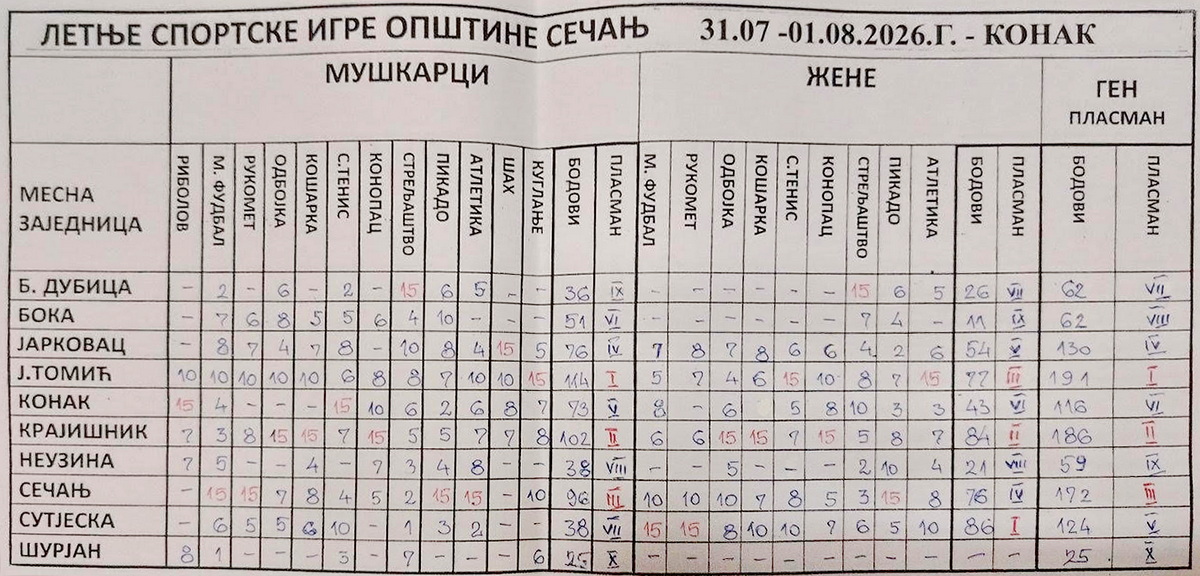 ЛЕТЊЕ СПОРТСКЕ ИГРЕ ОПШТИНЕ СЕЧАЊ 31.07 -01.08.2026.Г. - КОНАК
МУШКАРЦИ ЖЕНЕ ГЕН ПЛАСМАН
МЕСНА ЗАЈЕДНИЦА РИБОЛОВ М. ФУДБАЛ РУКОМЕТ ОДБОЈКА КОШАРКА С.ТЕНИС КОНОПАЦ СТРЕЉАШТВО ПИКАДО АТЛЕТИКА ШАХ КУГЛАЊЕ БОДОВИ ПЛАСМАН М. ФУДБАЛ РУКОМЕТ ОДБОЈКА КОШАРКА С.ТЕНИС КОНОПАЦ СТРЕЉАШТВО ПИКАДО АТЛЕТИКА БОДОВИ ПЛАСМАН БОДОВИ ПЛАСМАН
Б. ДУБИЦА - 2 - 6 - 2 - 15 6 5 - - 36 IX - - - - - - 15 6 5 26 VII 62 VII
БОКА - 7 6 8 5 5 6 4 10 - - - 51 VI - - - - - - 7 4 - 11 IX 62 VIII
ЈАРКОВАЦ - 8 7 4 7 8 - 10 8 4 15 5 76 IV 7 8 7 8 6 6 4 2 6 54 V 130 IV
Ј.ТОМИЋ 10 10 10 10 10 6 8 8 7 10 10 15 114 I 5 7 4 6 15 10 8 7 15 77 III 191 I
КОНАК 15 4 - - - 15 10 6 2 6 8 7 73 V 8 - 6 5 8 10 3 3 43 VI 116 VI
КРАЈИШНИК 7 3 8 15 15 7 15 5 5 7 7 8 102 II 6 6 15 15 7 15 5 8 7 84 II 186 II
НЕУЗИНА 7 5 - - 4 - 7 3 4 8 - - 38 VIII - - 5 - - - 2 10 4 21 VIII 59 IX
СЕЧАЊ - 15 15 7 8 4 5 2 15 15 - 10 96 III 10 10 10 7 8 5 3 15 8 76 IV 172 III
СУТЈЕСКА - 6 5 5 6 10 - 1 3 2 - - 38 VII 15 15 8 10 10 7 6 5 10 86 I 124 V
ШУРЈАН 8 1 - - - 3 - 7 - - - 6 25 X - - - - - - - - - - - 25 X